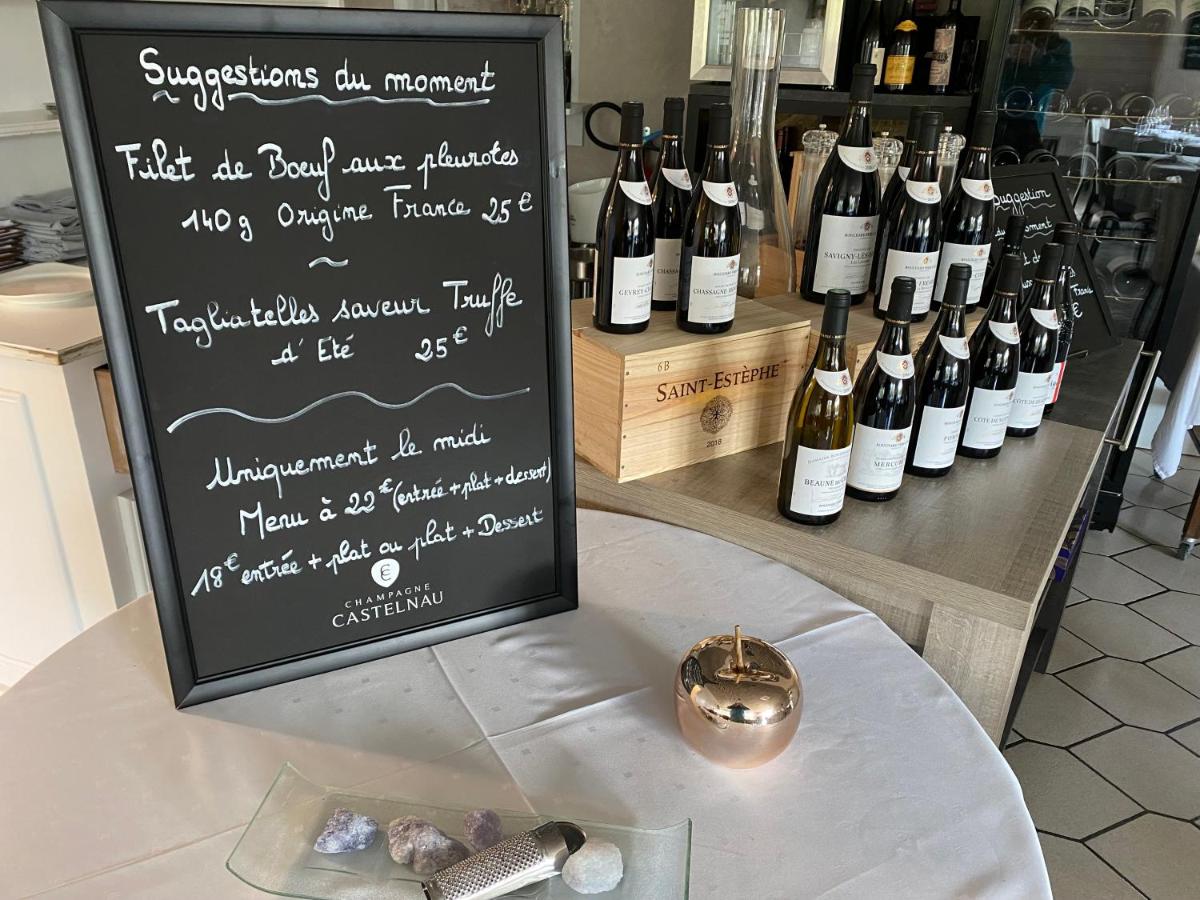 Suggestions du moment
Filet de Boeuf aux pleurotes
140g Origine France 25€
~
Tagliatelles saveur Truffe
d'Eté 25€
Uniquement le midi
Menu à 22€ (entrée + plat + dessert)
18€ entrée + plat ou plat + Dessert
CHAMPAGNE
CASTELNAU
6B
SAINT-ESTÈPHE
2018
GEVREY-CH
CHASSAGNE
SAVIGNY-LÈS-
BEAUNE
MERCUR
CÔTE DE
CÔTE DE
Suggestion